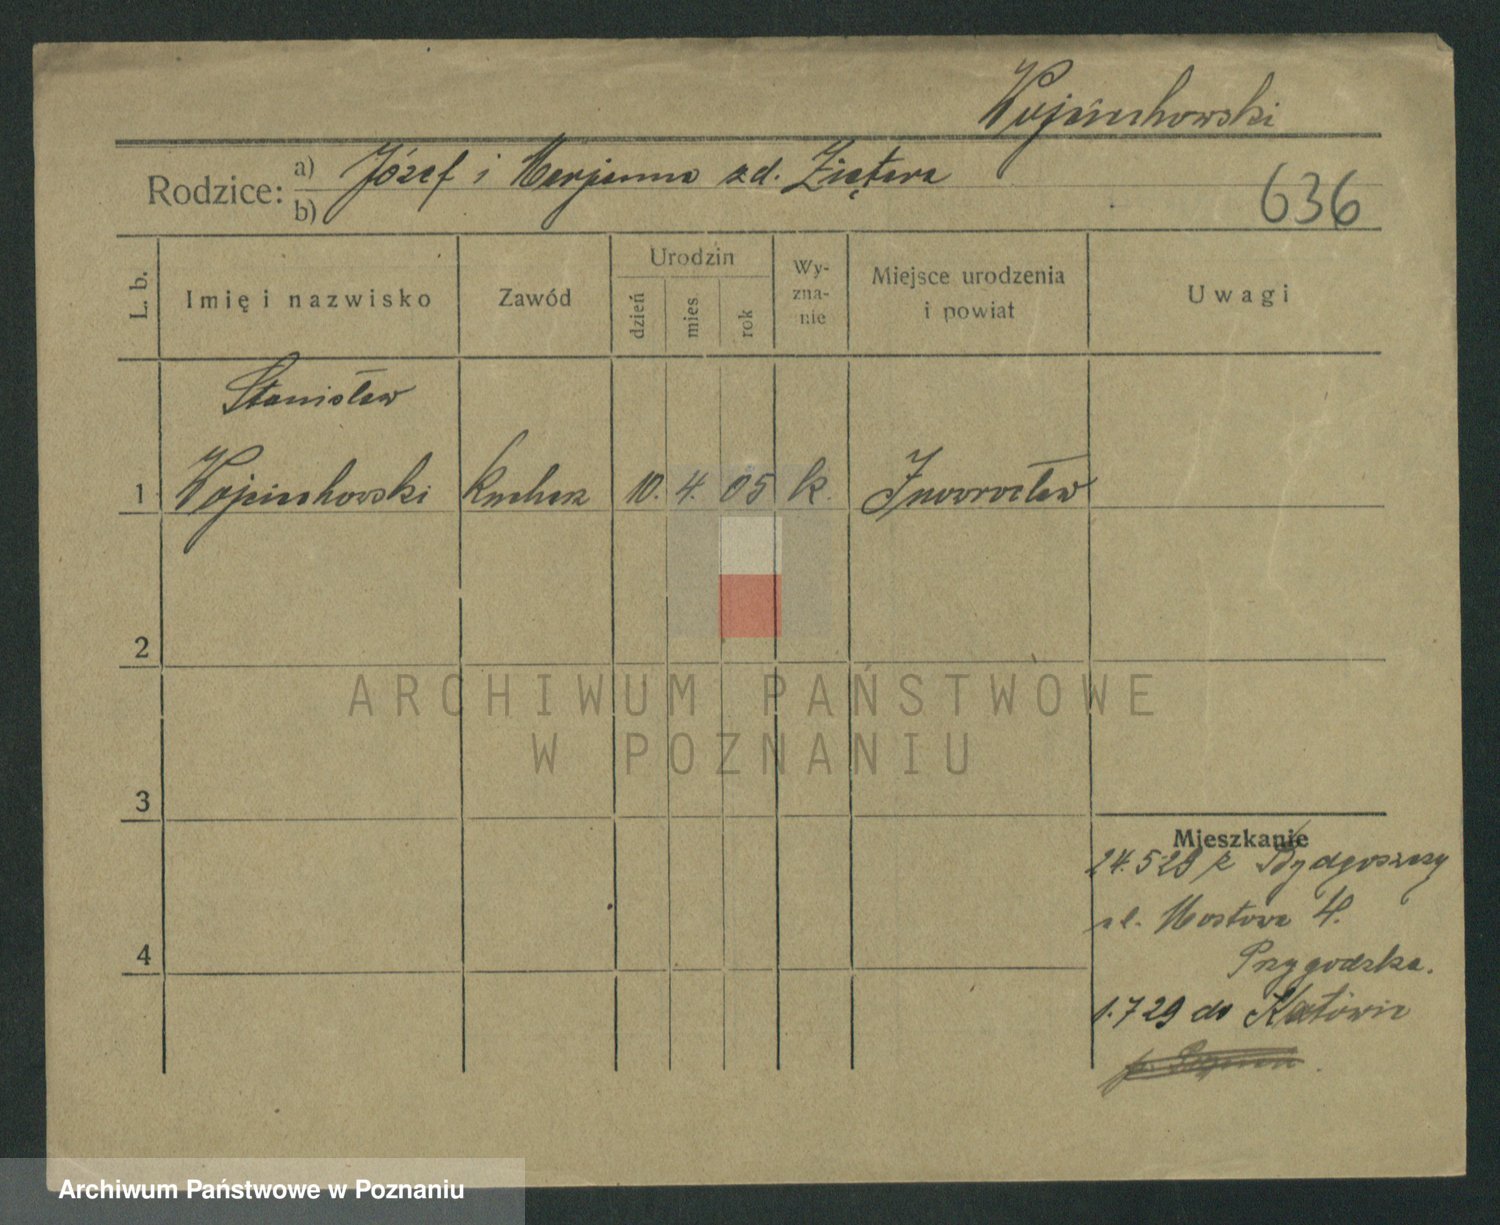 Wojciechowski
Rodzice: a) Józef i Marjanna zd. Ziętara
b)
636
L. b.
Imię i nazwisko
Zawód
Urodzin
dzień
mies.
rok
Wy-
zna-
nie
Miejsce urodzenia
i powiat
Uwagi
Stanisław
1 Wojciechowski kucharz 10. 4. 05 k. Inowrocław
2
3
4
Mieszkanie
24.5 29 z Bydgoszczy
ul. Mostowa 4.
Przygodzka.
1.7 29 do Katowic
ARCHIWUM PAŃSTWOWE
W POZNANIU
Archiwum Państwowe w Poznaniu